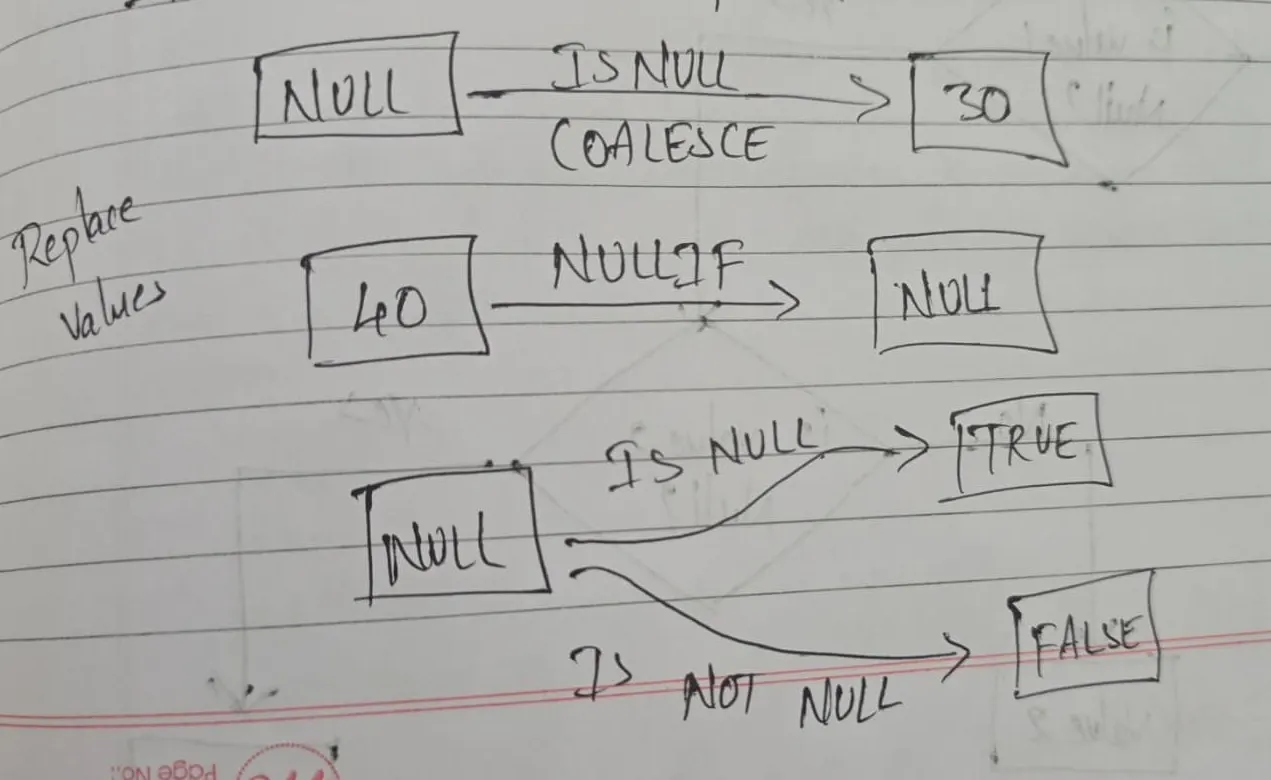 NULL ISNULL 30
COALESCE
Replace
values
40 NULLIF NULL
IS NULL TRUE
NULL
IS NOT NULL FALSE
Page No.: